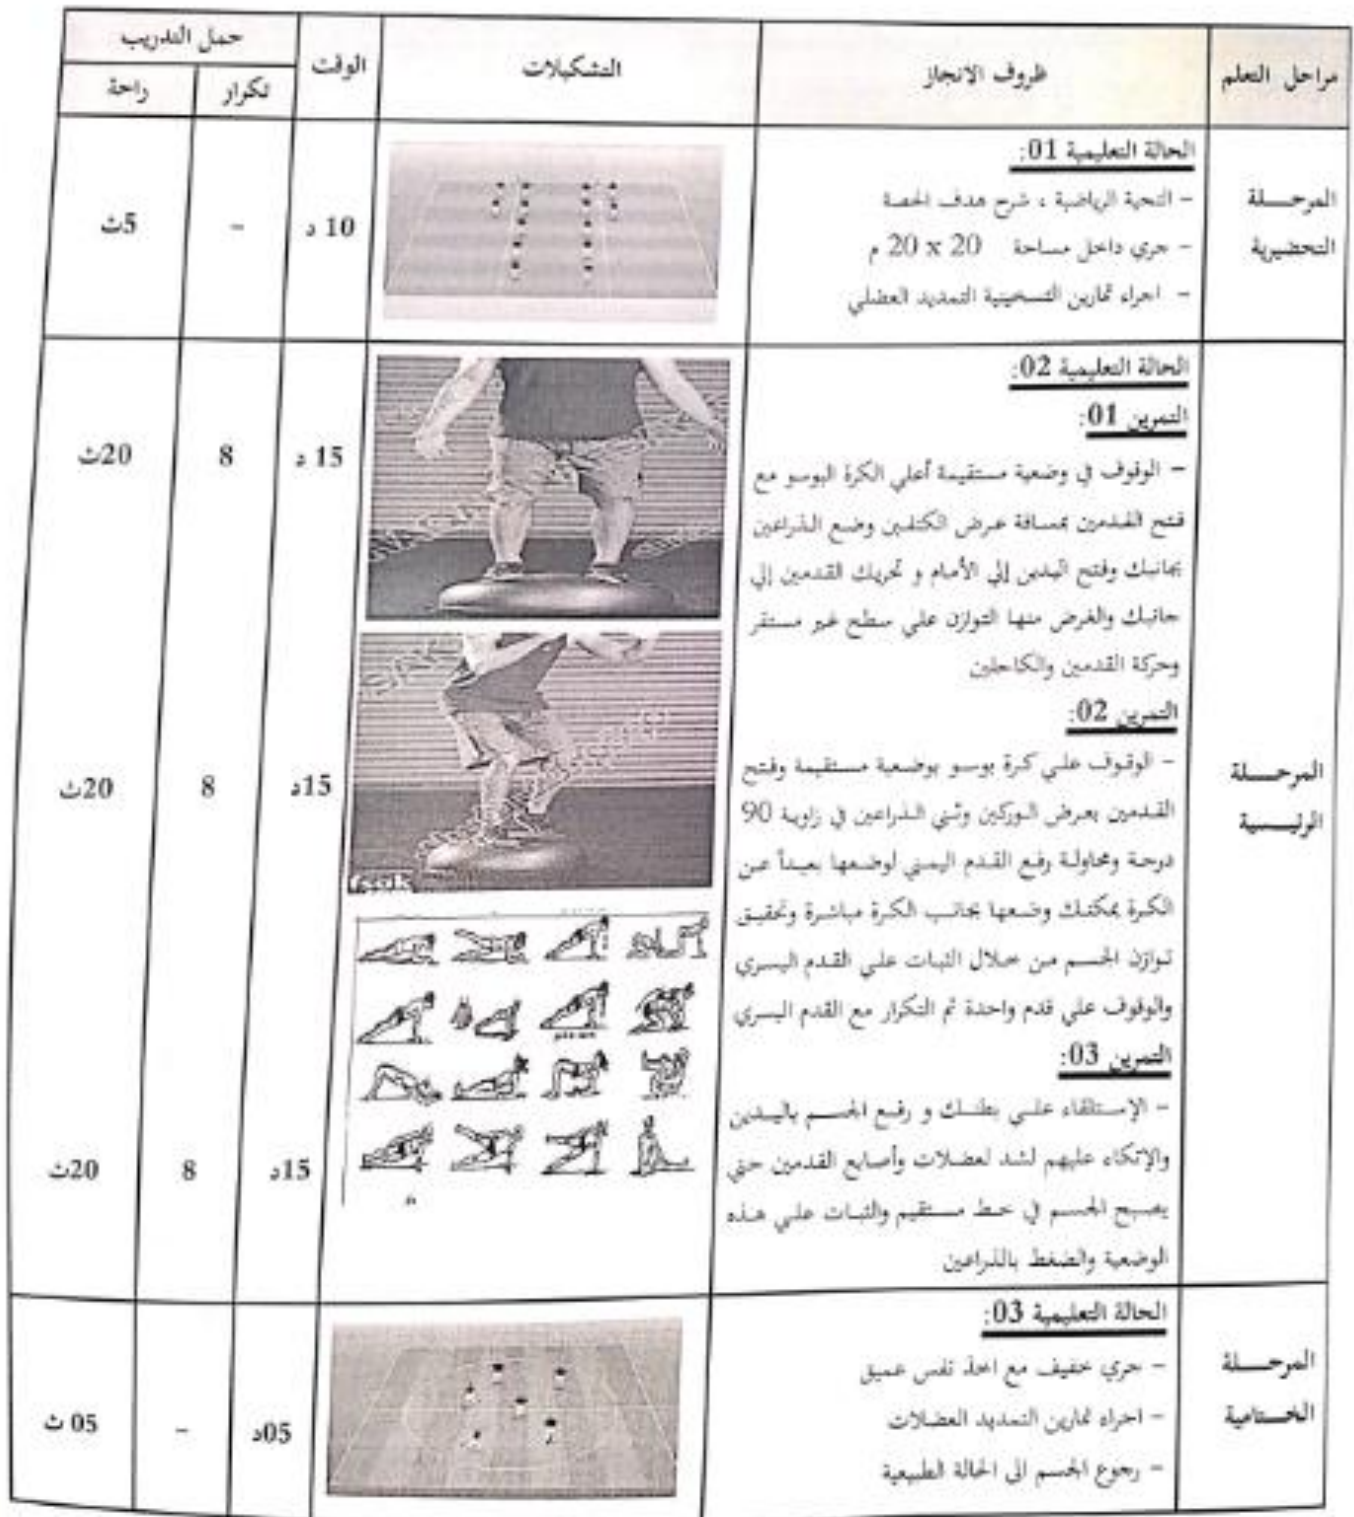 مراحل التعلم
ظروف الانجاز
التشكيلات
الوقت
حمل التدريب
تكرار
راحة
المرحلة
التحضيرية
الحالة التعليمية 01:
- التحية الرياضية ، شرح هدف الحصة
- جري داخل مساحة 20 x 20 م
- اجراء تمارين التسخينية التمديد العضلي
10 د
-
5ث
المرحلة
الرئيسية
الحالة التعليمية 02:
التمرين 01:
- الوقوف في وضعية مستقيمة أعلي الكرة البوسو مع
فتح القدمين بمسافة عرض الكتفين وضع الذراعين
بجانبك وفتح اليدين إلي الأمام و تحريك القدمين إلي
جانبك والغرض منها التوازن علي سطح غير مستقر
وحركة القدمين والكاحلين
15 د
8
20ث
التمرين 02:
- الوقوف علي كرة بوسو بوضعية مستقيمة وفتح
القدمين بعرض الوركين وثني الذراعين في زاوية 90
درجة ومحاولة رفع القدم اليمني لوضعها بعيداً عن
الكرة يمكنك وضعها بجانب الكرة مباشرة وتحقيق
توازن الجسم من خلال الثبات علي القدم اليسري
والوقوف علي قدم واحدة تم التكرار مع القدم اليسري
15د
8
20ث
التمرين 03:
- الإستلقاء علي بطنك و رفع الجسم باليدين
والإتكاء عليهم لشد لعضلات وأصابع القدمين حتي
يصبح الجسم في خط مستقيم والثبات علي هذه
الوضعية والضغط بالذراعين
15د
8
20ث
المرحلة
الختامية
الحالة التعليمية 03:
- جري خفيف مع اخذ نفس عميق
- اجراء تمارين التمديد العضلات
- رجوع الجسم الى الحالة الطبيعية
05د
-
05 ث